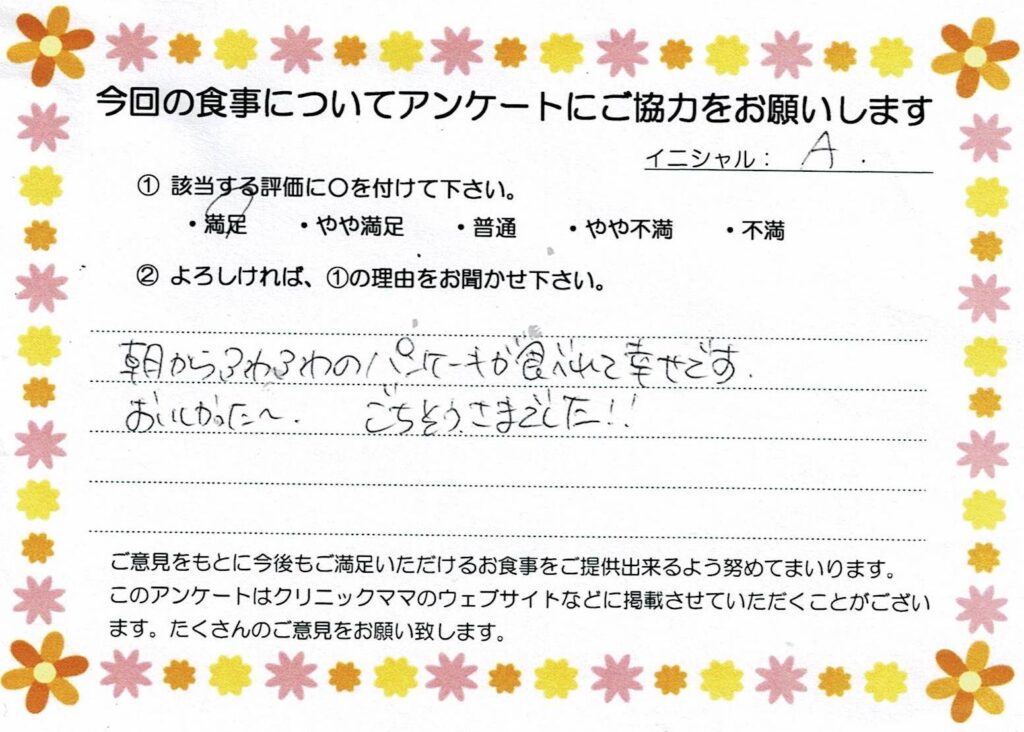 今回の食事についてアンケートにご協力をお願いします
イニシャル： A .
① 該当する評価に〇を付けて下さい。
・満足 ・やや満足 ・普通 ・やや不満 ・不満
② よろしければ、①の理由をお聞かせ下さい。
朝からふわふわのパンケーキが食べれて幸せです.
おいしかった〜. ごちそうさまでした!!
ご意見をもとに今後もご満足いただけるお食事をご提供出来るよう努めてまいります。
このアンケートはクリニックママのウェブサイトなどに掲載させていただくことがござい
ます。たくさんのご意見をお願い致します。